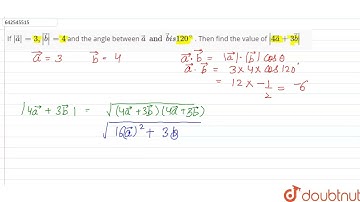 642545515
If |a⃗| = 3, |b⃗| = 4 and the angle between a⃗ and b⃗ is 120°. Then find the value of |4a⃗ + 3b⃗|
a⃗ = 3 b⃗ = 4 a⃗·b⃗ = |a⃗|·|b⃗| cosθ
a⃗·b⃗ = 3×4×cos120°
= 12 × -1/2 = -6
|4a⃗ + 3b⃗| = √(4a⃗+3b⃗)(4a⃗+3b⃗)
√16(a⃗)² + 3b
doubtnut